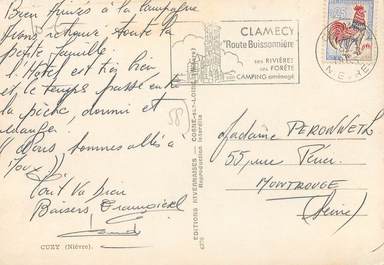 Bien arrivés à la campagne
avons retrouvé toute la
petite famille.
L'Hôtel est très bien
et le temps passe entre
la pêche, dormir et
manger.
Nous sommes allés à
Tout va bien
Baisers
CUZY (Nièvre).
58
EDITIONS NIVERNAISES - COSNE-sur-LOIRE (Nièvre)
Reproduction interdite
CLAMECY
"Route Buissonnière"
SES RIVIÈRES
SES FORÊTS
SON CAMPING aménagé
NIEVRE
Madame PERONNETH
55, rue
MONTROUGE
(Seine)